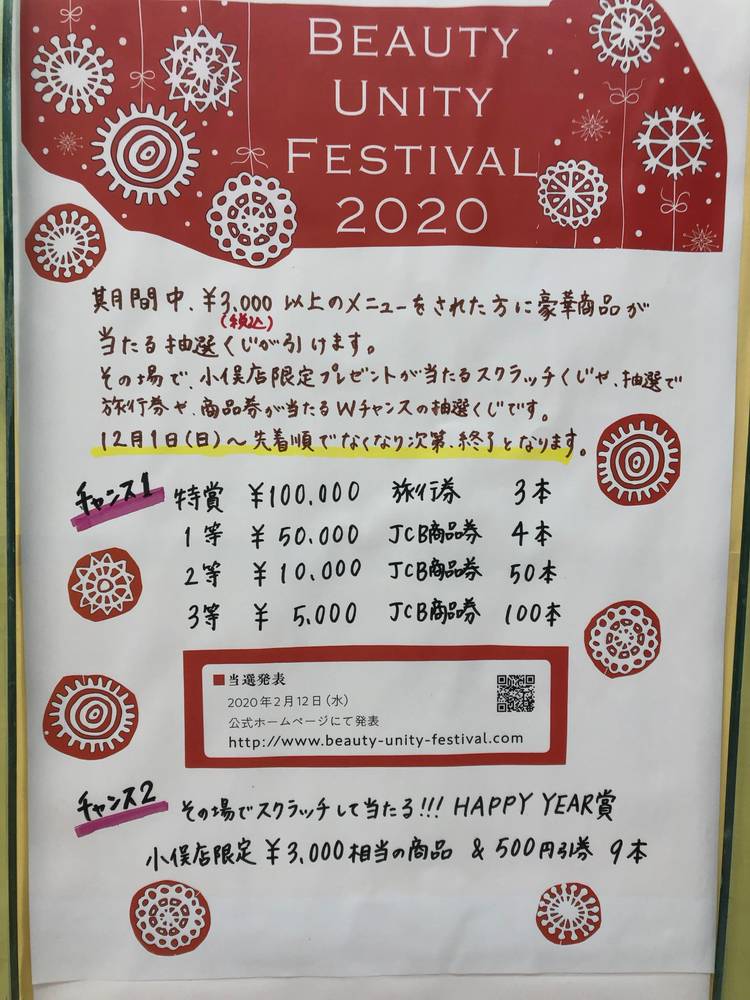 BEAUTY
UNITY
FESTIVAL
2020
期間中、¥3,000 以上のメニューをされた方に豪華商品が
(税込)
当たる抽選くじが引けます。
その場で、小俣店限定プレゼントが当たるスクラッチくじや、抽選で
旅行券や、商品券が当たるWチャンスの抽選くじです。
12月1日(日)～先着順でなくなり次第、終了となります。
チャンス1 特賞 ¥100,000 旅行券 3本
1等 ¥50,000 JCB商品券 4本
2等 ¥10,000 JCB商品券 50本
3等 ¥5,000 JCB商品券 100本
■当選発表
2020年2月12日(水)
公式ホームページにて発表
http://www.beauty-unity-festival.com
チャンス2 その場でスクラッチして当たる!!! HAPPY YEAR賞
小俣店限定 ¥3,000相当の商品 & 500円引券 9本